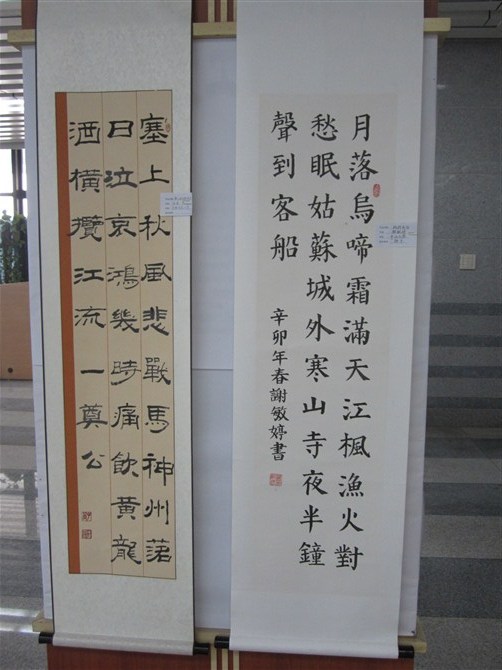 月落烏啼霜滿天江楓漁火對
愁眠姑蘇城外寒山寺夜半鐘
聲到客船
辛卯年春謝敏婷書
塞上秋風悲戰馬神州落
日泣哀鴻幾時痛飲黃龍
酒橫攬江流一奠公